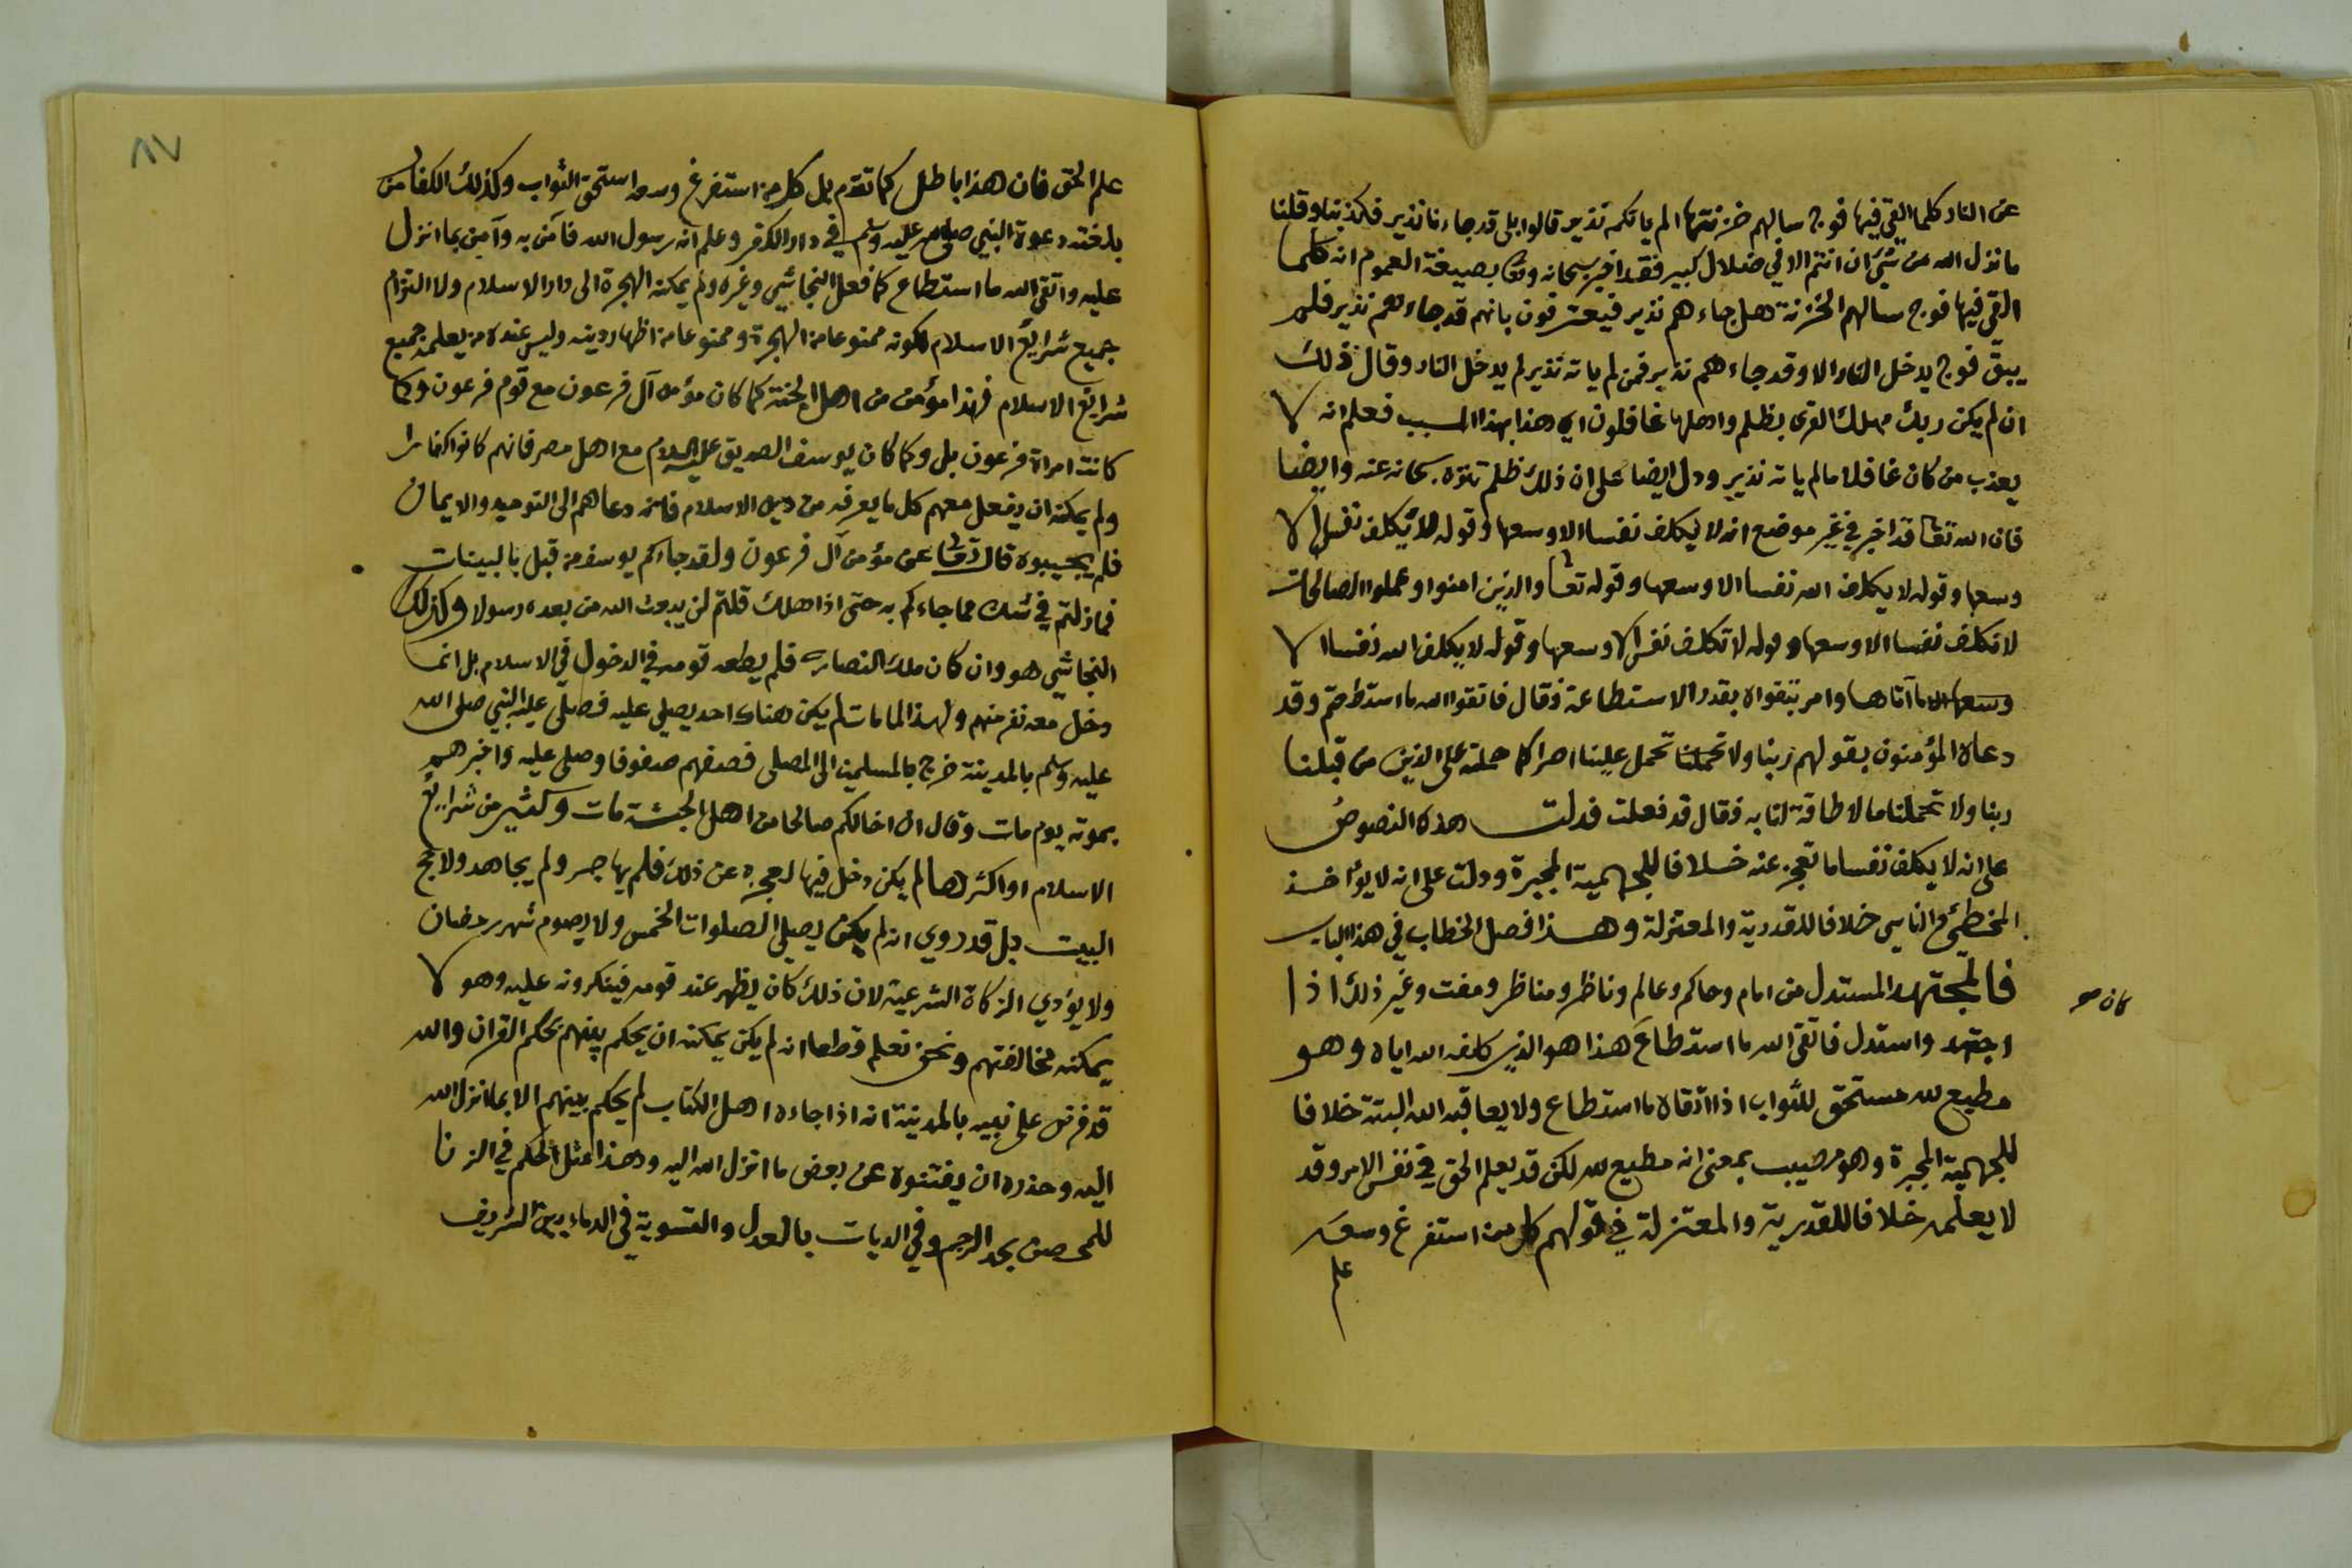 عن النار كلما القي فيها فوج سالهم خزنتها الم ياتكم نذير قالوا بلى قد جاءنا نذير فكذبنا وقلنا
ما نزل الله من شيئ ان انتم الا في ضلال كبير فقد اخبر سبحانه وتعا بصيغة العموم انه كلما
القي فيها فوج سالهم الخزنة هل جاءهم نذير فيعترفون بانهم قد جاءهم نذير فلم
يبق فوج يدخل النار الا وقد جاءهم نذير فمن لم ياته نذير لم يدخل النار وقال ذلك
ان لم يكن ربك مهلك القرى بظلم واهلها غافلون اي هذا بهذا السبب فعلم انه لا
يعذب من كان غافلا ما لم ياته نذير ودل ايضا على ان ذلك ظلم تنزه سبحانه عنه وايضا
فان الله تعا قد اخبر في غير موضع انه لا يكلف نفسا الا وسعها وقوله لا يكلف نفس الا
وسعها وقوله لا يكلف الله نفسا الا وسعها وقوله تعا والذين امنوا وعملوا الصالحات
لا نكلف نفسا الا وسعها وقوله لا تكلف نفس الا وسعها وقوله لا يكلف الله نفسا الا
وسعها الا ما آتاها وامر بتقواه بقدر الاستطاعة فقال فاتقوا الله ما استطعتم وقد
دعاه المؤمنون بقولهم ربنا ولا تحملنا تحمل علينا اصرا كما حملته على الذين من قبلنا
ربنا ولا تحملنا ما لا طاقة لنا به فقال قد فعلت فدلت هذه النصوص
على انه لا يكلف نفسا ما تعجز عنه خلافا للجهمية المجبرة ودلت على انه لا يؤاخذ
المخطئ والناسي خلافا للقدرية والمعتزلة وهذا فصل الخطاب في هذا الباب
فالمجتهد المستدل من امام وحاكم وعالم وناظر ومناظر ومفت وغير ذلك اذا
كان هو
اجتهد واستدل فاتقى الله ما استطاع هذا هو الذي كلفه الله اياه وهو
مطيع لله مستحق للثواب اذا اتقاه ما استطاع ولا يعاقبه الله البتة خلافا
للجهمية المجبرة وهو مصيب بمعنى انه مطيع لله لكن قد يعلم الحق في نفس الامر وقد
لا يعلمه خلافا للقدرية والمعتزلة في قولهم كل من استفرغ وسعه
علم
٨٧
علم الحق فان هذا باطل كما تقدم بل كل من استفرغ وسعه استحق الثواب وكذلك الكفار من
بلغته دعوة النبي صلى الله عليه وسلم في دار الكفر وعلم انه رسول الله فامن به وآمن بما انزل
عليه واتقى الله ما استطاع كما فعل النجاشي وغيره ولم يمكنه الهجرة الى دار الاسلام ولا التزام
جميع شرايع الاسلام لكونه ممنوعا من الهجرة وممنوعا من اظهار دينه وليس عنده من يعلمه جميع
شرايع الاسلام فهذا مؤمن من اهل الجنة كما كان مؤمن آل فرعون مع قوم فرعون وكما
كانت امراة فرعون بل وكما كان يوسف الصديق عليه السلام مع اهل مصر فانهم كانوا كفارا
ولم يمكنه ان يفعل معهم كل ما يعرفه من دين الاسلام فانه دعاهم الى التوحيد والايمان
فلم يجيبوه قال تعا عن مؤمن آل فرعون ولقد جاءكم يوسف من قبل بالبينات
فما زلتم في شك مما جاءكم به حتى اذا هلك قلتم لن يبعث الله من بعده رسولا وكذلك
النجاشي هو وان كان ملك النصارى فلم يطعه قومه في الدخول في الاسلام بل انما
دخل معه نفر منهم ولهذا لما مات لم يكن هناك احد يصلي عليه فصلى عليه النبي صلى الله
عليه وسلم بالمدينة خرج بالمسلمين الى المصلى فصفهم صفوفا وصلى عليه واخبرهم
بموته يوم مات وقال ان اخا لكم صالحا من اهل الحبشة مات وكثير من شرايع
الاسلام او اكثرها لم يكن دخل فيها لعجزه عن ذلك فلم يهاجر ولم يجاهد ولا حج
البيت بل قد روي انه لم يكن يصلي الصلوات الخمس ولا يصوم شهر رمضان
ولا يؤدي الزكاة الشرعية لان ذلك كان يظهر عند قومه فينكرونه عليه وهو لا
يمكنه مخالفتهم ونحن نعلم قطعا انه لم يكن يمكنه ان يحكم بينهم بحكم القران والله
قد فرض على نبيه بالمدينة انه اذا جاءه اهل الكتاب لم يحكم بينهم الا بما انزل الله
اليه وحذره ان يفتنوه عن بعض ما انزل الله اليه وهذا مثل الحكم في الزنا
للمحصن بحد الرجم وفي الديات بالعدل والتسوية في الدماء بين الشريف